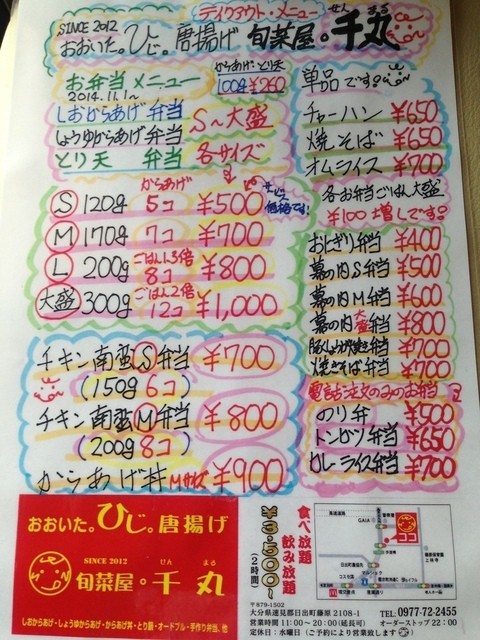 テイクアウト・メニュー
SINCE 2012
おおいた。ひじ。唐揚げ 旬菜屋。千丸
せん まる
お弁当メニュー
2014.11.1~
からあげ・とり天
100g ¥250
しおからあげ弁当
しょうゆからあげ弁当
とり天 弁当
S~大盛
各サイズ
からあげ
S 120g 5コ ¥500
M 170g 7コ ¥700
ごはん1.5倍
L 200g 8コ ¥800
ごはん2倍
大盛 300g 12コ ¥1,000
チキン南蛮S弁当 ¥700
(150g 6コ)
チキン南蛮M弁当 ¥800
(200g 8コ)
からあげ丼 Mサイズ ¥900
単品です。
チャーハン ¥650
焼そば ¥650
オムライス ¥700
各お弁当ごはん大盛
¥100増しです。
おにぎり弁当 ¥400
幕の内S弁当 ¥500
幕の内M弁当 ¥600
幕の内大盛弁当 ¥800
豚しょうが焼き弁当 ¥700
焼きそば弁当 ¥700
電話注文のみのお弁当
のり弁 ¥500
トンカツ弁当 ¥650
カレーライス弁当 ¥700
おおいた。ひじ。唐揚げ
SINCE 2012
せん まる
旬菜屋・千丸
しおからあげ・しょうゆからあげ・からあげ丼・とり天・オードブル・手作り弁当、他
食べ放題
飲み放題
¥3,500~
(2時間)
ココ
〒879-1502
大分県速見郡日出町藤原2108-1
TEL 0977-72-2455
営業時間 11:00~20:00(延長可) オーダーストップ 22:00
定休日:水曜日(ご予約により営業致します)